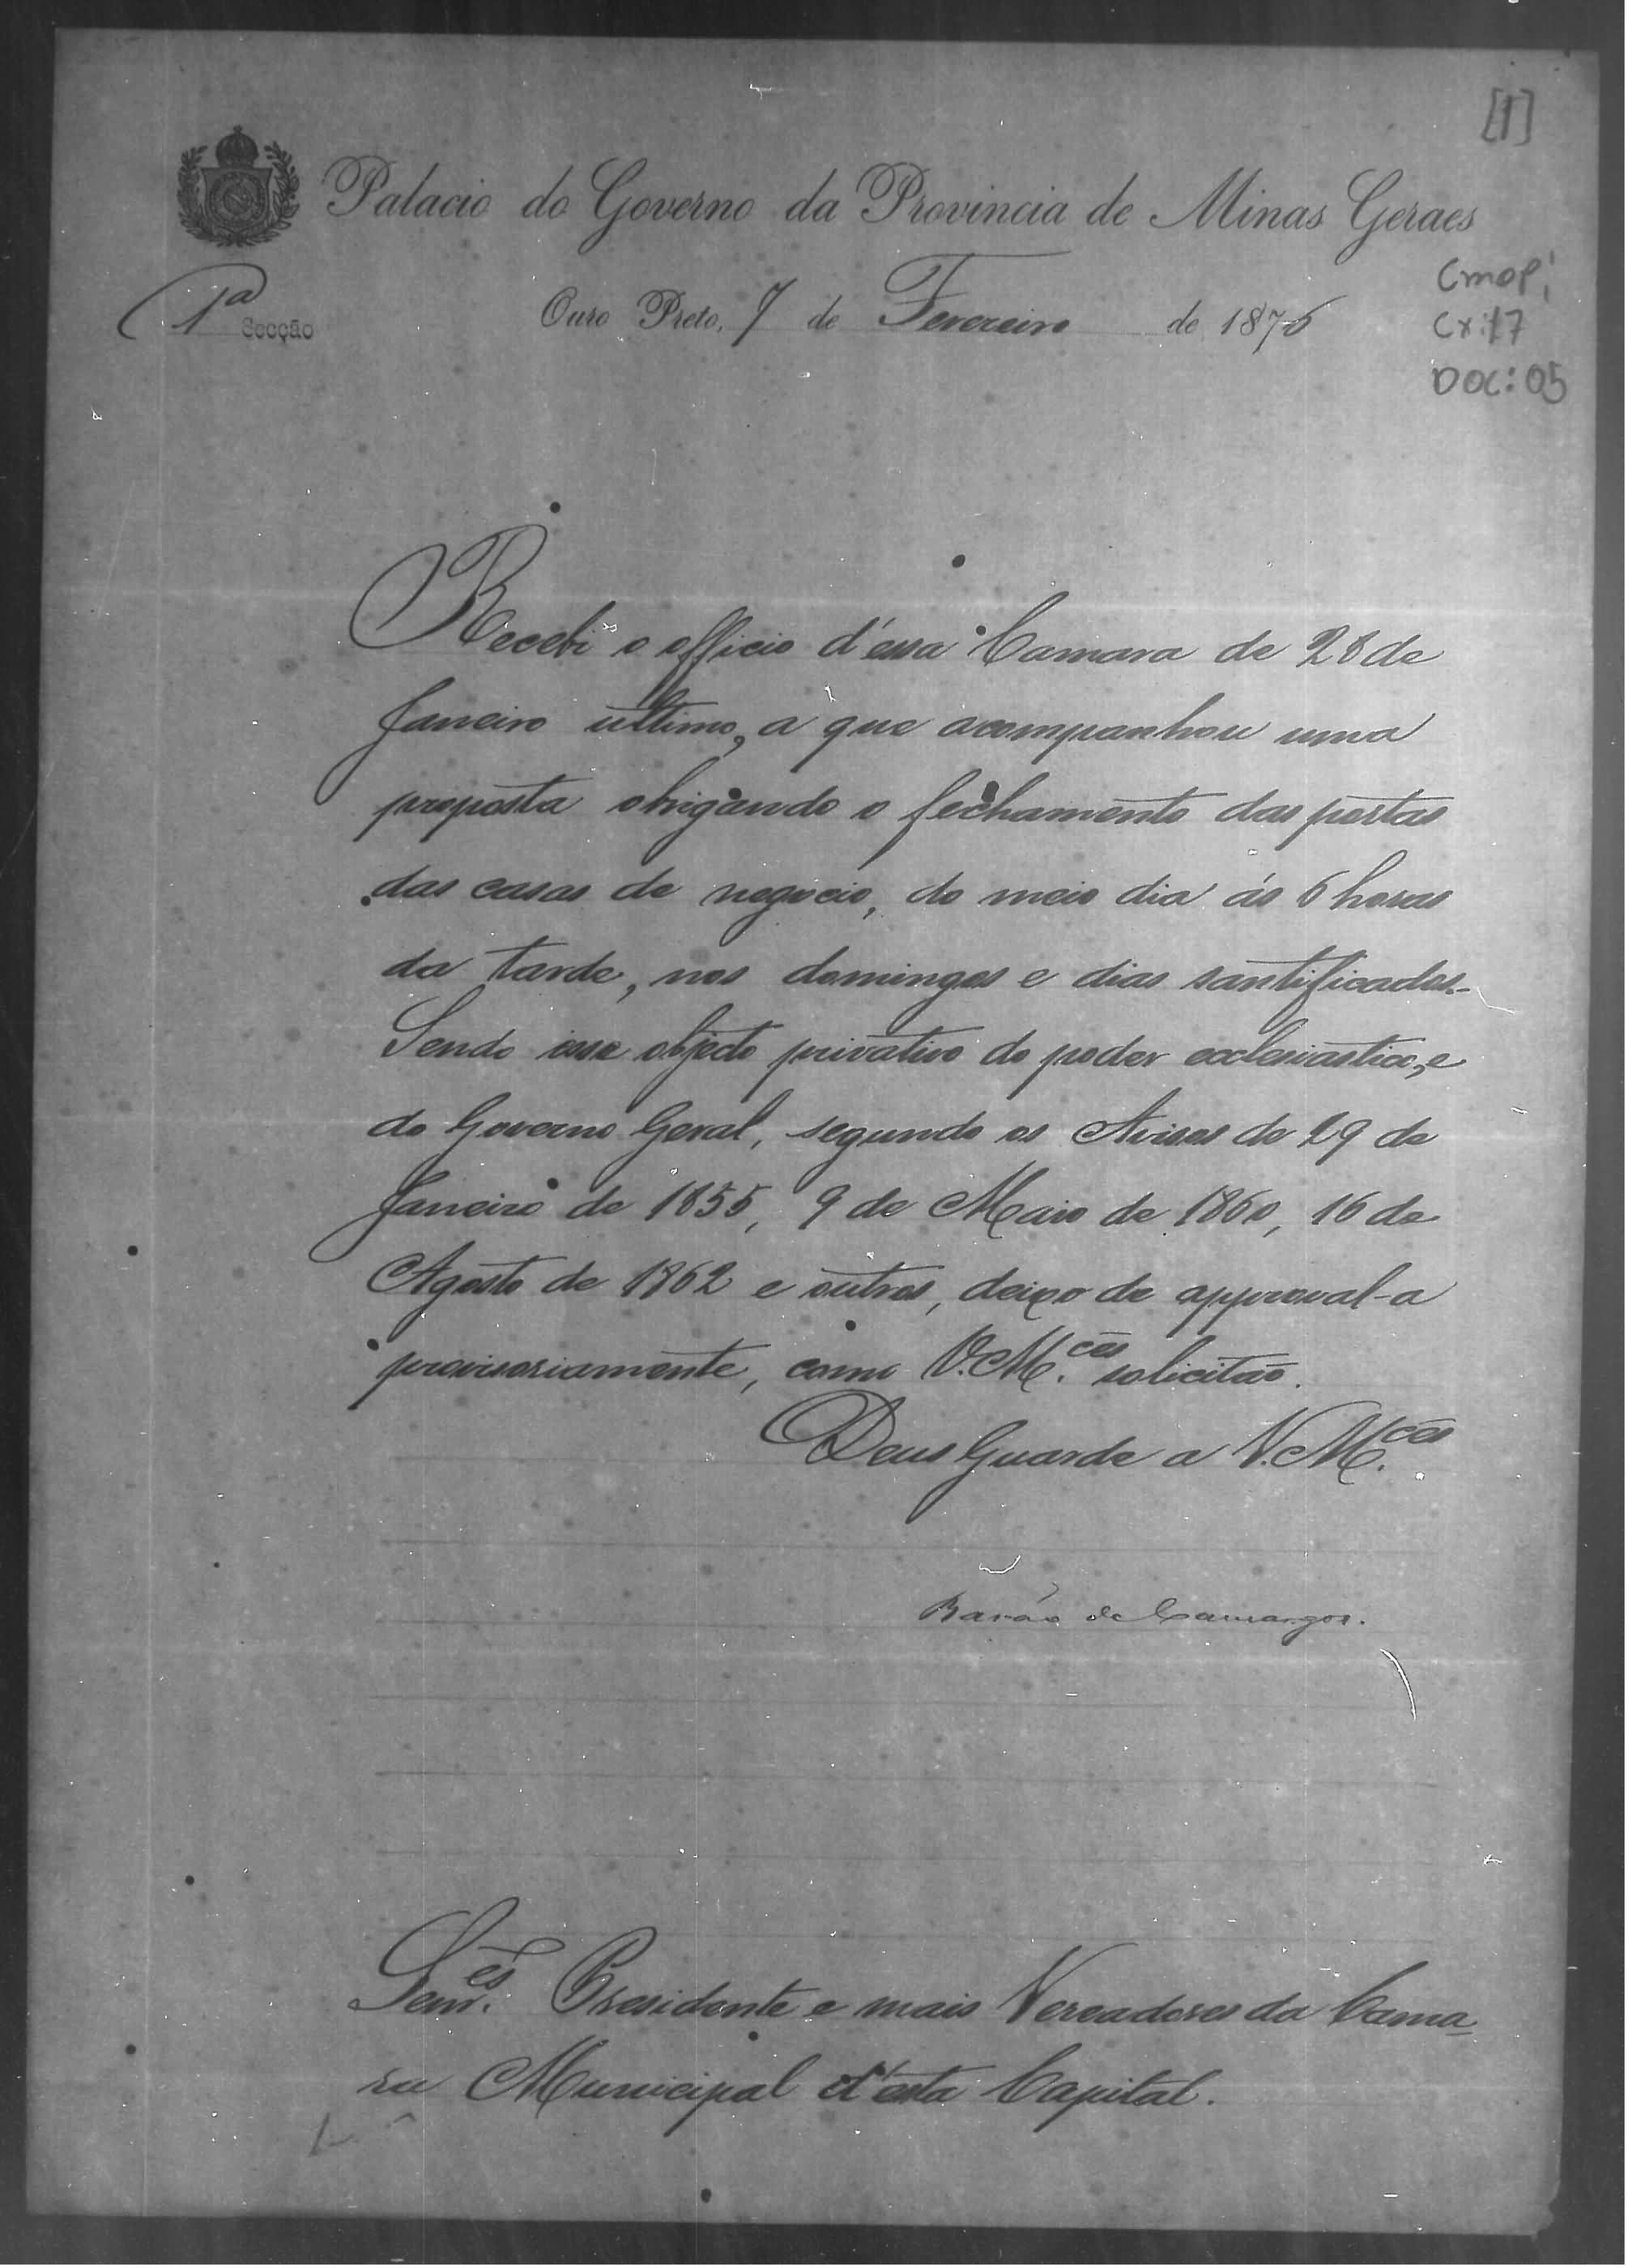 [1]
Palacio do Governo da Provincia de Minas Geraes
1ª Secção
Ouro Preto, 7 de Fevereiro de 1876
Cmop;
Cx:17
DOC:05
Recebi o officio d'essa Camara de 28 de
Janeiro ultimo, a que acompanhou uma
proposta obrigando o fechamento das portas
das casas de negocio, do meio dia ás 6 horas
da tarde, nos domingos e dias santificados.
Sendo esse objecto privativo do poder ecclesiastico, e
do Governo Geral, segundo os Avisos de 29 de
Janeiro de 1855, 9 de Maio de 1860, 16 de
Agosto de 1862 e outros, deixo de approval-a
provisoriamente, como V.M.ces solicitão.
Deus Guarde a V.M.ces
Barão de Camargos.
Senr.es Presidente e mais Vereadores da Cama-
ra Municipal d'esta Capital.